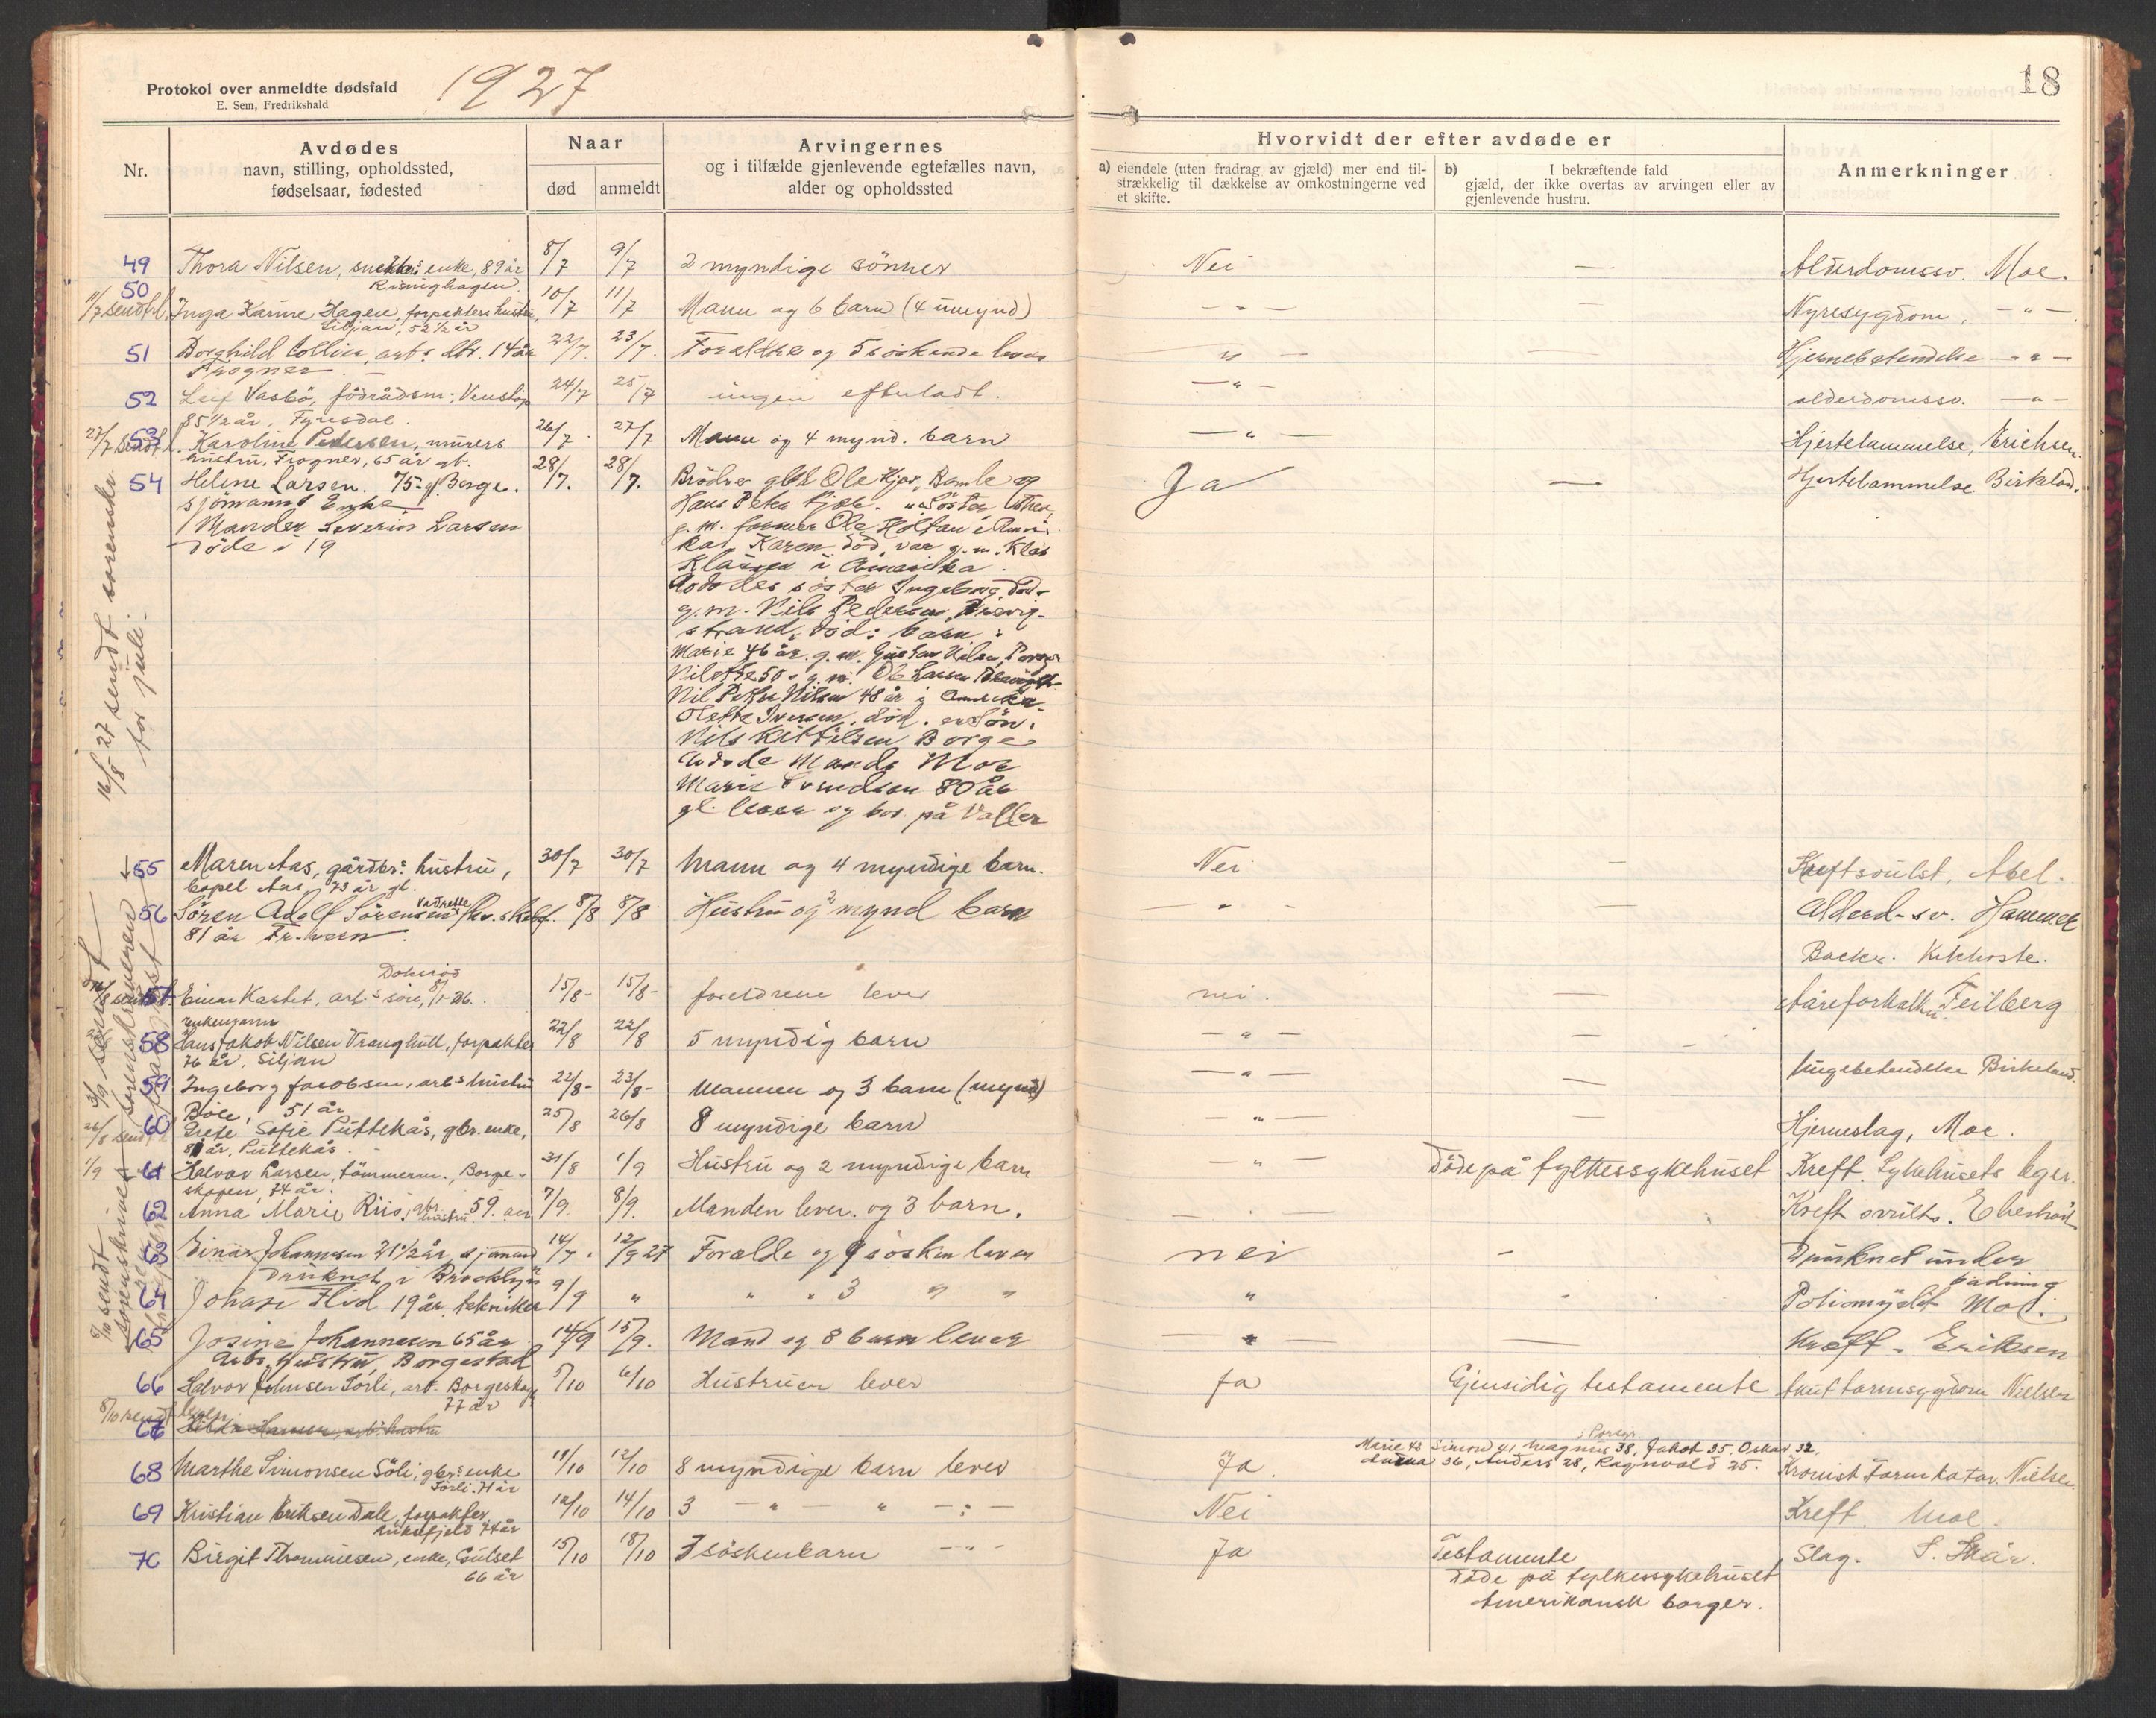 Protokol over anmeldte dødsfald
E. Sem, Fredrikshald
1927
18
Nr.
Avdødes
navn, stilling, opholdssted,
fødselsaar, fødested
Naar
død
anmeldt
Arvingernes
og i tilfælde gjenlevende egtefælles navn,
alder og opholdssted
Hvorvidt der efter avdøde er
a) eiendele (uten fradrag av gjæld) mer end til-
strækkelig til dækkelse av omkostningerne ved
et skifte.
b) I bekræftende fald
gjæld, der ikke overtas av arvingen eller av
gjenlevende hustru.
Anmerkninger
49 Thora Nilsen, enke, 89 år 8/7 9/7 2 myndige sönner Nei — Alderdomssv. Moe.
50 Inga Karine Hagen, forpakters hustru, 10/7 11/7 Mann og 6 barn (4 umynd) - " - — Nyresygdom, - " -
Siljan, 52 1/2 år
51 Borghild Collin, arbs dtr. 14 år 22/7 23/7 Foraldre og 5 söskende lever " — — Hjernebetendelse - " -
Frogner
52 Leif Vasbö, födrådsm., Venstöp 24/7 25/7 ingen efterladt. - " - alderdomssv. - " -
85 1/2 år, Fyresdal.
53 Karoline Pedersen, murers 26/7 27/7 Mann og 4 mynd. barn - " - Hjertelammelse, Erichsen.
hustru, Frogner, 65 år gl.
54 Helene Larsen. 75 gl Borge. 28/7. 28/7. Brödre Ole Kjær, Bamle og Ja — Hjertelammelse. Birkeland.
sjömanns Enke
Manden Severin Larsen
döde i 19
Hans Peter Kjær. Söster
g.m. Ole Holtan i Ameri
ka. Karen död, var g.m. Klas
Klasen i Amerika.
Avdödes söster Ingeborg död
g.m. Nils Pedersen, Brevig-
strand, död: barn:
Marie 46 år. g.m. Gustav Nilsen, Porsgr
50 " g.m. Ole Larsen
Nil Peter Nilsen 48 år i Amerika
Olefte Iversen. död. en Sön:
Nils Kittilsen Borge
Avdöde Mands Mor
Maria Svendsen 80 år
gl. lever og bor på Valler
16/8 27 sendt sorenskr.
for juli.
55 Maren Aas, gårdbrs hustru, 30/7 30/7 Mann og 4 myndige barn. Nei — Kreftsvulst, Abel.
Aas, 73 år gl.
56 Sören Adolf Sörensen 8/8 8/8 Hustru og 2 mynd barn - " - — Alderd-sv. Hammer
81 år
Backer. Kikhoste.
57. Einar Kastet, arbs sön, 15/8- 15/8- foreldrene lever nei. — Åreforkalkn. Feilberg
enkemann
58 Hans Jakob Nilsen Vranghull, forpakter 22/8 22/8 5 myndig barn - " - —
76 år, Siljan
59 Ingeborg Jacobsen, arbs hustru 22/8- 23/8- Mannen og 3 barn (mynd) - " - — Birkeland.
Böle, 51 år
60 Grete Sofie Puttekås, gbr. enke, 25/8 26/8 8 myndige barn - " - — Hjerneslag, Moe.
år, Puttekås.
61 Halvor Larsen, tömmerm., Borge- 31/8 1/9 Hustru og 2 myndige barn - " - Döde på fylkessykehuset Kreft. Sykehusets leger.
skogen, 74 år.
62 Anna Marie Riis, gbr. hustru 59. aar 7/9. 8/9. Manden lever. og 3 barn. Kreft svulst.
63 Einar Johannesen 21 1/2 år, sjömand 14/7 12/9 27 Forælde og 9 sösken lever nei - Druknet under
druknet i Brooklyn badning
64 Johan Flid 19 år tekniker 9/9 " " " 3 " " " - Poliomyelit Moe.
65 Josine Johannesen 65 år 14/9 15/9. Mand og 8 barn lever — Kræft - Eriksen
Arbs. Hustru, Borgestad
66 Halvor Johnsen Sörli, arb. Borgeskogen 5/10 6/10 Hustruen lever Ja Gjensidig testamente Akut tarmsygdom Nielsen
77 år
67
Marie 43 Simon 41 Magnus 38, Jakob 35. Oskar 32.
Anna 36, Anders 28, Ragnvald 25.
68 Marthe Simonsen Söli, gbrs enke 11/10 12/10 8 myndige barn lever Ja. Kronisk Tarmkatar. Nielsen
69 Kristian Eriksen Dale, forpakter 12/10 14/10 3 - " - " - " - Nei Kreft. Moe.
74 år
70 Birgit Thommesen, enke, Gulset 15/10 18/10 7 söskenbarn - " - Ja Testamente Slag. S. Skår.
66 år
Döde på fylkessykehuset
Amerikansk borger.